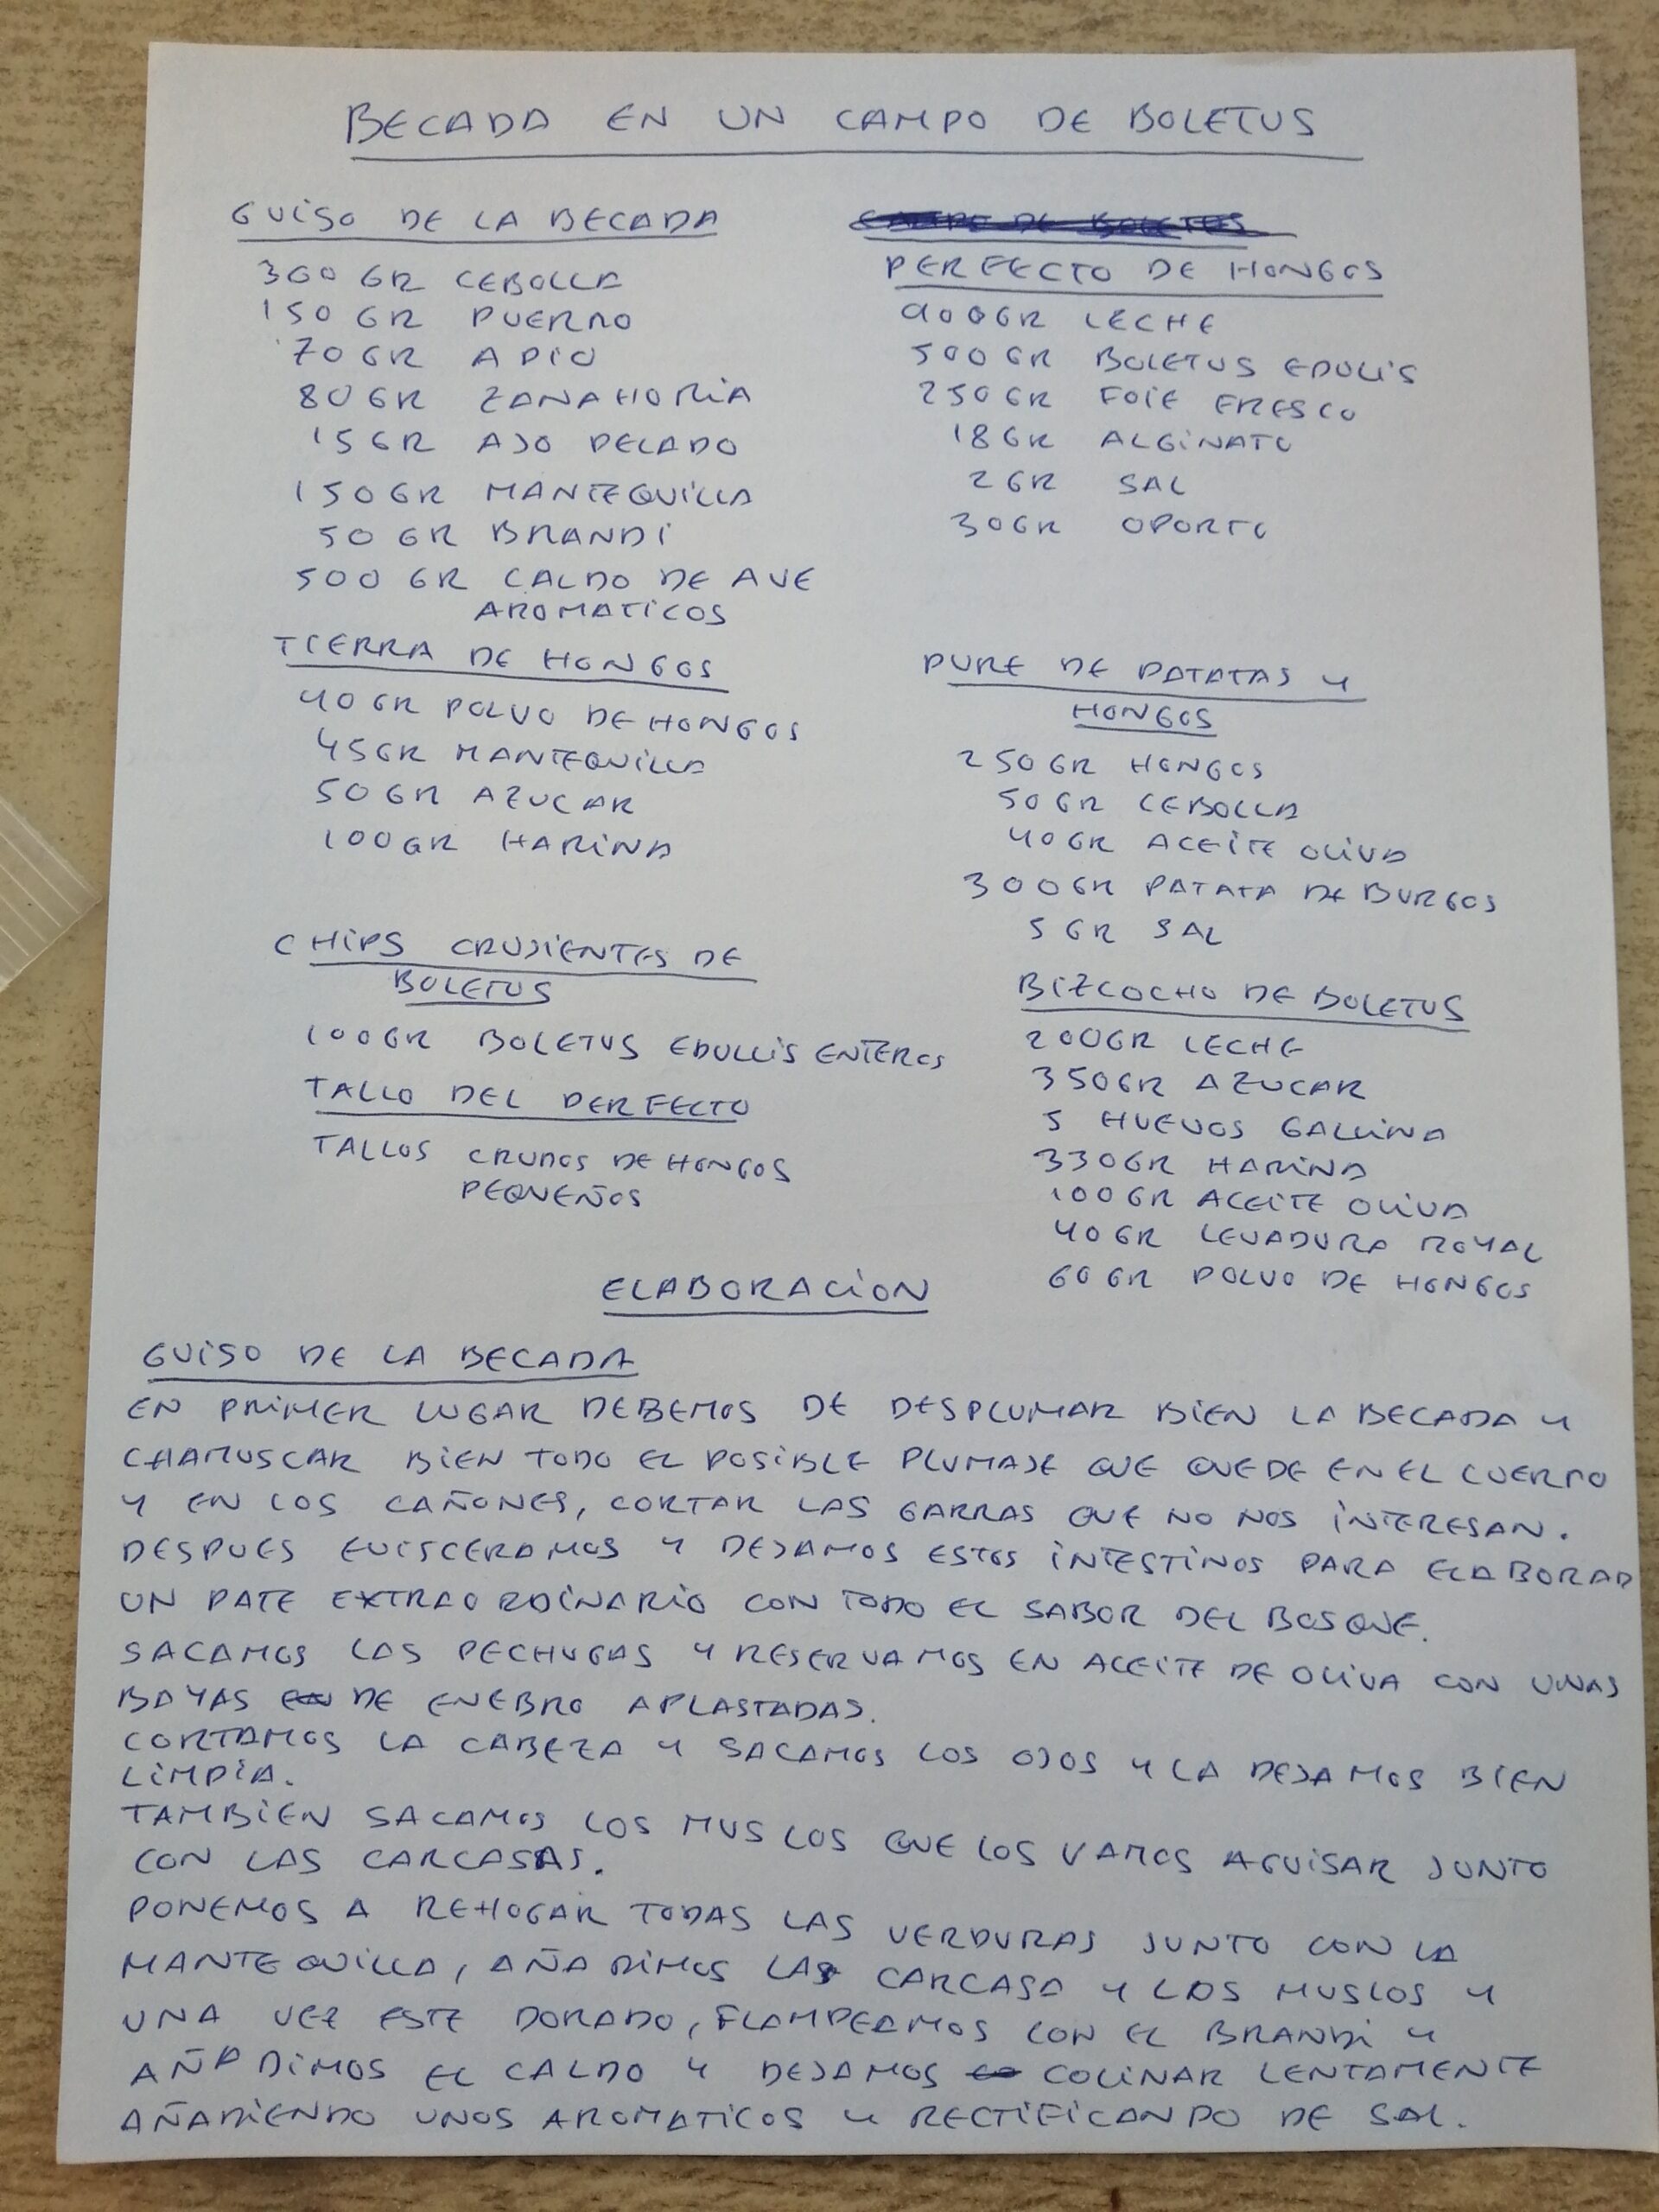 BECADA EN UN CAMPO DE BOLETUS
GUISO DE LA BECADA
300 GR CEBOLLA
150 GR PUERRO
70 GR APIO
80 GR ZANAHORIA
15 GR AJO PELADO
150 GR MANTEQUILLA
50 GR BRANDI
500 GR CALDO DE AVE
AROMATICOS
CAMPO DE BOLETUS
PERFECTO DE HONGOS
900 GR LECHE
500 GR BOLETUS EDULIS
250 GR FOIE FRESCO
18 GR ALGINATO
2 GR SAL
30 GR OPORTO
TIERRA DE HONGOS
40 GR POLVO DE HONGOS
45 GR MANTEQUILLA
50 GR AZUCAR
100 GR HARINA
PURE DE PATATAS Y
HONGOS
250 GR HONGOS
50 GR CEBOLLA
40 GR ACEITE OLIVA
300 GR PATATA DE BURGOS
5 GR SAL
CHIPS CRUJIENTES DE
BOLETUS
100 GR BOLETUS EDULLIS ENTEROS
TALLO DEL PERFECTO
TALLOS CRUDOS DE HONGOS
PEQUEÑOS
BIZCOCHO DE BOLETUS
200 GR LECHE
350 GR AZUCAR
5 HUEVOS GALLINA
330 GR HARINA
100 GR ACEITE OLIVA
40 GR LEVADURA ROYAL
60 GR POLVO DE HONGOS
ELABORACION
GUISO DE LA BECADA
EN PRIMER LUGAR DEBEMOS DE DESPLUMAR BIEN LA BECADA Y
CHAMUSCAR BIEN TODO EL POSIBLE PLUMAJE QUE QUEDE EN EL CUERPO
Y EN LOS CAÑONES, CORTAR LAS GARRAS QUE NO NOS INTERESAN.
DESPUES EVISCERAMOS Y DEJAMOS ESTOS INTESTINOS PARA ELABORAR
UN PATE EXTRAORDINARIO CON TODO EL SABOR DEL BOSQUE.
SACAMOS LAS PECHUGAS Y RESERVAMOS EN ACEITE DE OLIVA CON UNAS
BAYAS EN DE ENEBRO APLASTADAS.
CORTAMOS LA CABEZA Y SACAMOS LOS OJOS Y LA DEJAMOS BIEN
LIMPIA.
TAMBIEN SACAMOS LOS MUSLOS QUE LOS VAMOS A GUISAR JUNTO
CON LAS CARCASAS.
PONEMOS A REHOGAR TODAS LAS VERDURAS JUNTO CON LA
MANTEQUILLA, AÑADIMOS LA CARCASA Y LOS MUSLOS Y
UNA VEZ ESTE DORADO, FLAMPEAMOS CON EL BRANDI Y
AÑADIMOS EL CALDO Y DEJAMOS CO COCINAR LENTAMENTE
AÑADIENDO UNOS AROMATICOS Y RECTIFICANDO DE SAL.